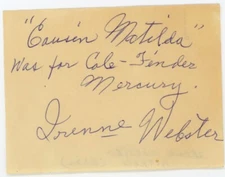 "Cousin Matilda"
Was for Cole-Finder
Mercury.
Dorenne Webster